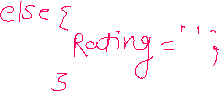 else {
Rating = " ";
}